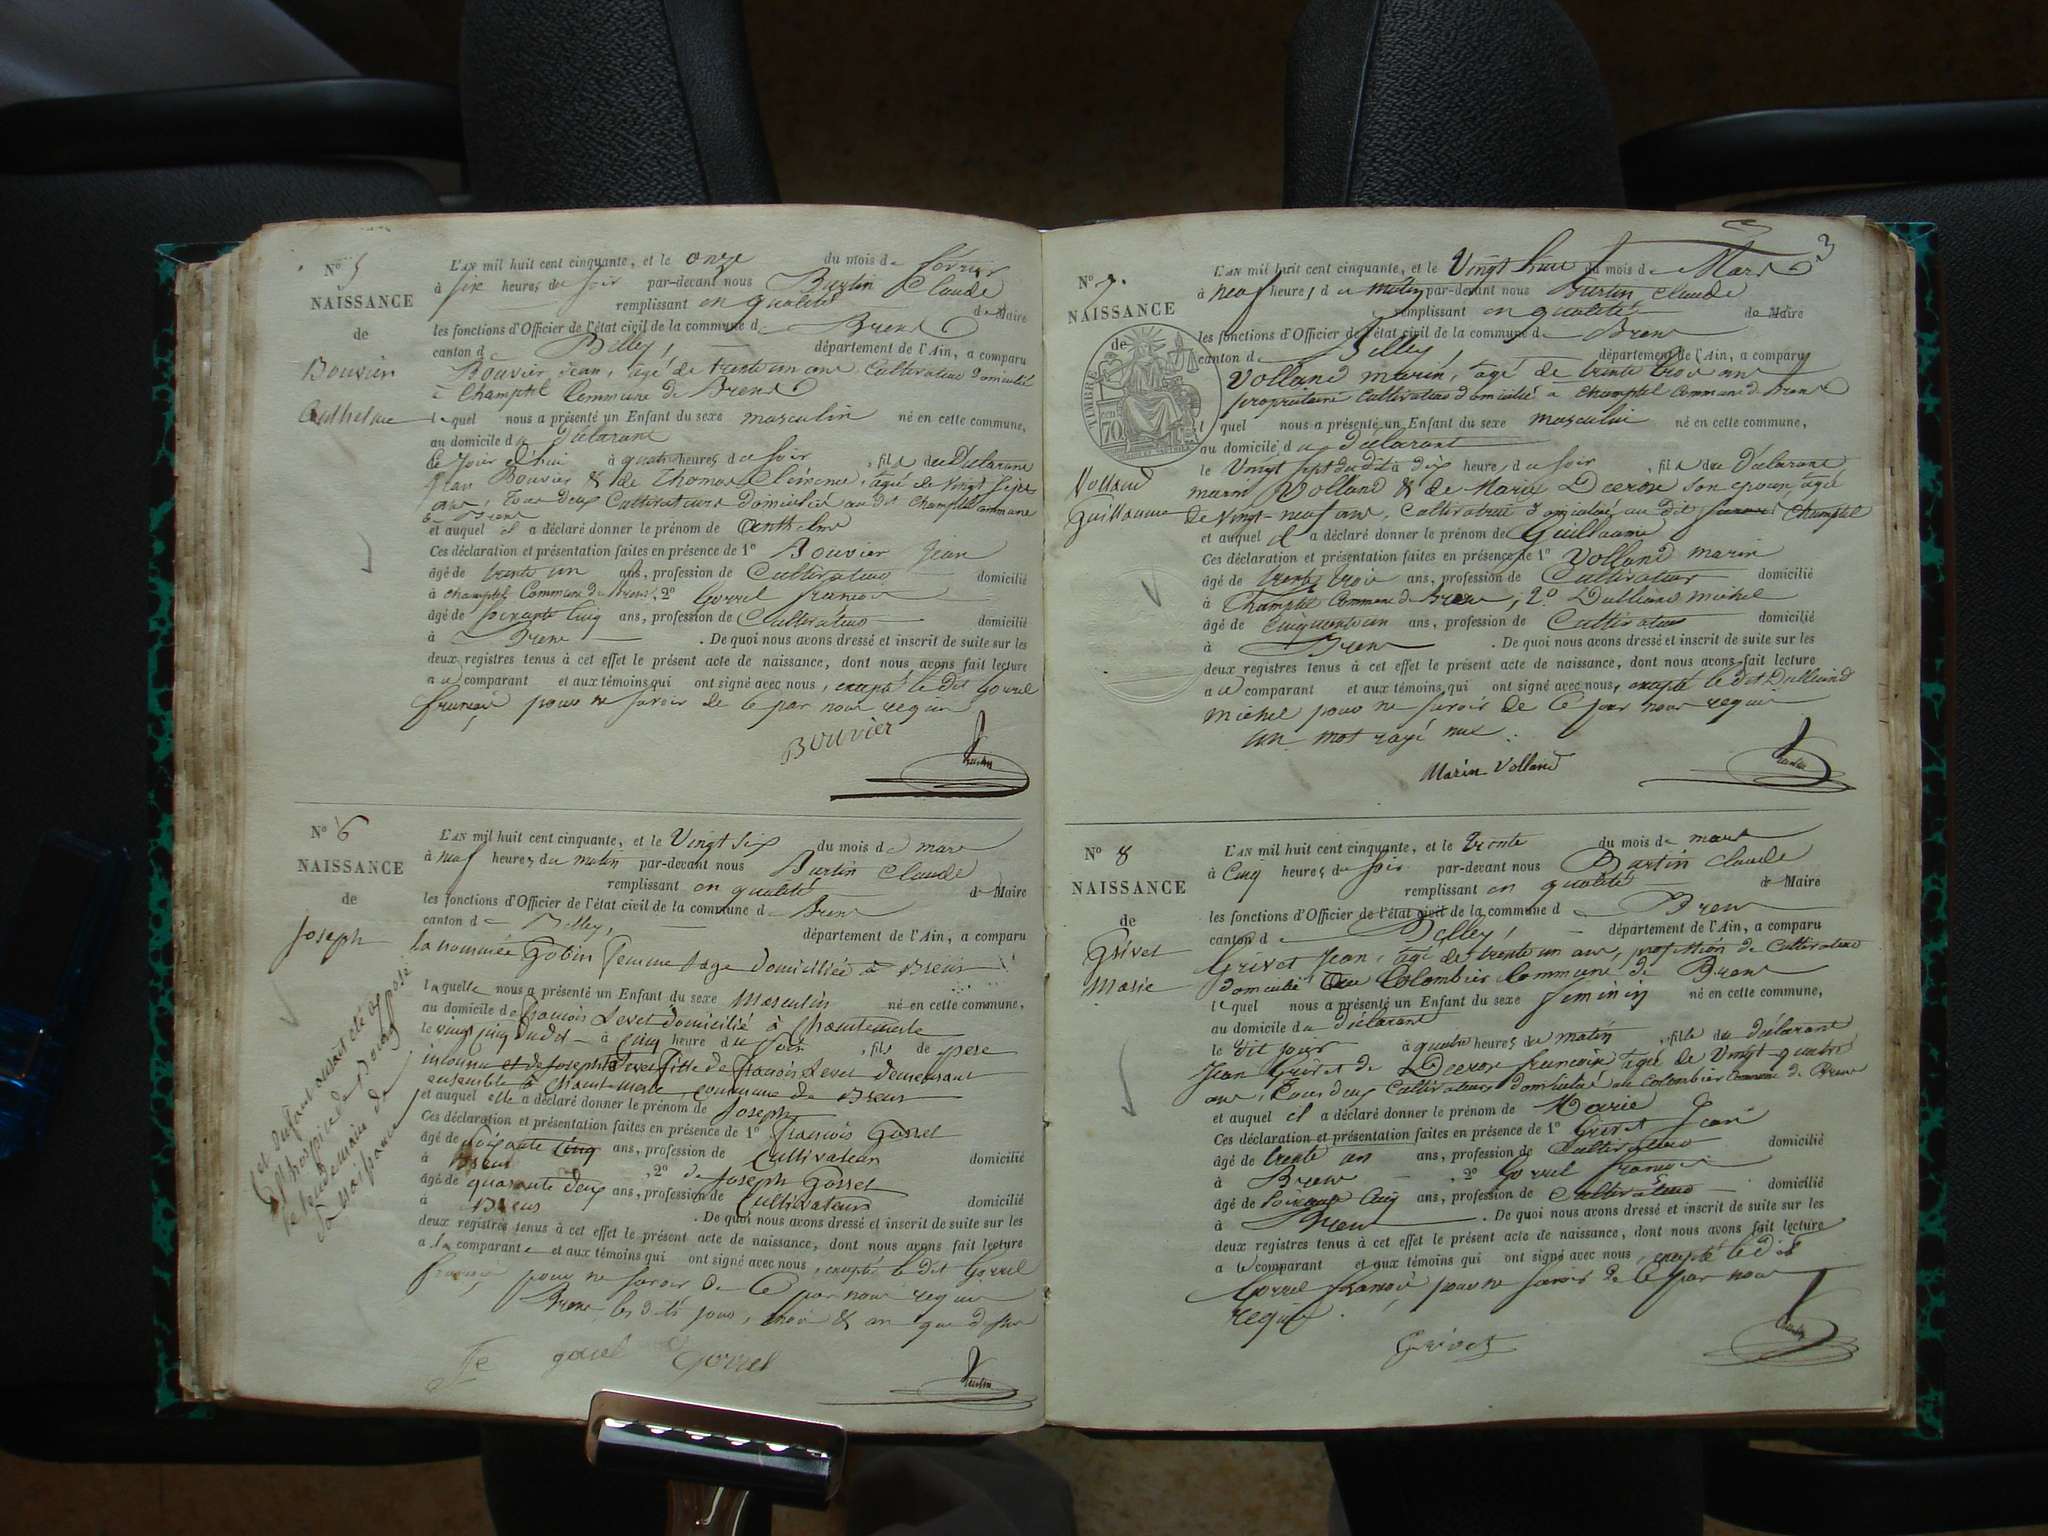 N° 5
NAISSANCE
de
Bouvier
Anthelme
L'AN mil huit cent cinquante, et le onze du mois de février
à six heures du soir par-devant nous Burtin Claude
remplissant en qualité de Maire
les fonctions d'Officier de l'état civil de la commune de Brens
canton de Belley, département de l'Ain, a comparu
Bouvier Jean, agé de trente un ans Cultivateur domicilié
à Champtel Commune de Brens
lequel nous a présenté un Enfant du sexe masculin né en cette commune,
au domicile du Déclarant
le jour d'hui à quatre heures du soir, fils du Déclarant
Jean Bouvier & de Thomas Clémence, agée de vingt
ans, tous deux Cultivateurs domiciliés au dit Champtel commune
de Brens
et auquel il a déclaré donner le prénom de Anthelme
Ces déclaration et présentation faites en présence de 1° Bouvier Jean
âgé de trente un ans, profession de Cultivateur domicilié
à Champtel Commune de Brens, 2° Gorrel francois
âgé de soixante Cinq ans, profession de Cultivateur domicilié
à Brens. De quoi nous avons dressé et inscrit de suite sur les
deux registres tenus à cet effet le présent acte de naissance, dont nous avons fait lecture
a ce comparant et aux témoins qui ont signé avec nous, excepté le dit Gorrel
francois pour ne savoir de ce par nous requis
Bouvier
Burtin
N° 6
NAISSANCE
de
Joseph
Cet Enfant aurait été exposé
à l'hospice de Bourg
le lendemain de
sa naissance
L'AN mil huit cent cinquante, et le Vingt six du mois de mars
à neuf heures du matin par-devant nous Burtin Claude
remplissant en qualité de Maire
les fonctions d'Officier de l'état civil de la commune de Brens
canton de Belley, département de l'Ain, a comparu
la nommée Gobin femme sage domiciliée à Brens
laquelle nous a présenté un Enfant du sexe Masculin né en cette commune,
au domicile de francois Levet domicilié à Chantemerle
le vingt cinq dudit à cinq heure du soir, fils de père
inconnu et de Josephte Levet fille de francois Levet demeurant
ensemble à Chantemerle, commune de Brens
et auquel elle a déclaré donner le prénom de Joseph
Ces déclaration et présentation faites en présence de 1° francois Gorrel
âgé de soixante cinq ans, profession de Cultivateur domicilié
à Brens, 2° de Joseph Gorrel
âgé de quarante deux ans, profession de Cultivateur domicilié
à Brens. De quoi nous avons dressé et inscrit de suite sur les
deux registres tenus à cet effet le présent acte de naissance, dont nous avons fait lecture
a la comparante et aux témoins qui ont signé avec nous, excepté le dit Gorrel
francois pour ne savoir de ce par nous requis
Brens les dits jour, mois & an que dessus
gorrel
Burtin
3
N° 7.
NAISSANCE
de
TIMBRE
70
Volland
Guillaume
L'AN mil huit cent cinquante, et le Vingt huit du mois de Mars
à neuf heures du matin par-devant nous Burtin Claude
remplissant en qualité de Maire
les fonctions d'Officier de l'état civil de la commune de Brens
canton de Belley, département de l'Ain, a comparu
Volland marin, agé de trente trois ans
propriétaire Cultivateur domicilié à Champtel Commune de Brens
lequel nous a présenté un Enfant du sexe masculin né en cette commune,
au domicile du Déclarant
le Vingt sept du dit à dix heures du soir, fils du Déclarant
marin Volland & de Marie Deeron son epouse, agée
de vingt-neuf ans, Cultivatrice domiciliée au dit Champtel
et auquel il a déclaré donner le prénom de Guillaume
Ces déclaration et présentation faites en présence de 1° Volland marin
âgé de trente trois ans, profession de Cultivateur domicilié
à Champtel Commune de Brens, 2° Dulliand michel
âgé de Cinquante un ans, profession de Cultivateur domicilié
à Brens. De quoi nous avons dressé et inscrit de suite sur les
deux registres tenus à cet effet le présent acte de naissance, dont nous avons fait lecture
a ce comparant et aux témoins qui ont signé avec nous, excepté le dit Dulliand
michel pour ne savoir de ce par nous requis
un mot rayé nul.
Marin Volland
Burtin
N° 8
NAISSANCE
de
Grivet
Marie
L'AN mil huit cent cinquante, et le trente du mois de mars
à Cinq heures du soir par-devant nous Burtin Claude
remplissant en qualité de Maire
les fonctions d'Officier de l'état civil de la commune de Brens
canton de Belley, département de l'Ain, a comparu
Grivet Jean, agé de trente un ans, profession de Cultivateur
domicilié au Colombier Commune de Brens
lequel nous a présenté un Enfant du sexe féminin né en cette commune,
au domicile du Déclarant
le dit jour à quatre heures du matin, fille du Déclarant
Jean Grivet de Deeron francoise agée de Vingt-quatre
ans, tous deux Cultivateurs domiciliés au Colombier Commune de Brens
et auquel il a déclaré donner le prénom de Marie
Ces déclaration et présentation faites en présence de 1° Grivet Jean
âgé de trente un ans, profession de Cultivateur domicilié
à Brens 2° Gorrel francois
âgé de soixante Cinq ans, profession de Cultivateur domicilié
à Brens. De quoi nous avons dressé et inscrit de suite sur les
deux registres tenus à cet effet le présent acte de naissance, dont nous avons fait lecture
a le comparant et aux témoins qui ont signé avec nous, excepté le dit
Gorrel francois pour ne savoir de ce par nous
requis.
Grivet
Burtin